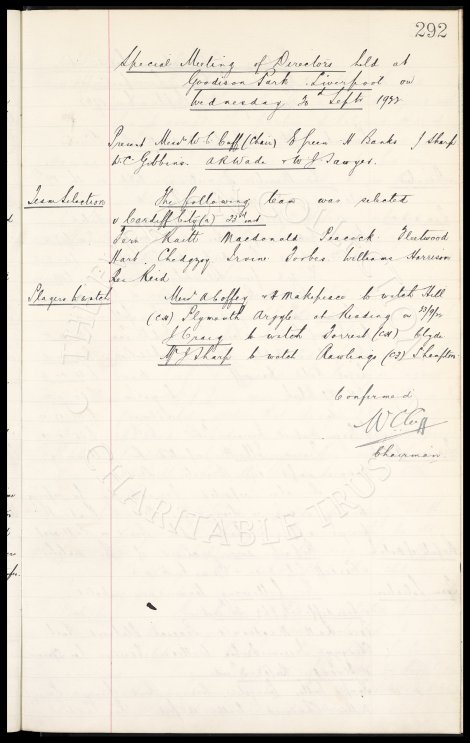 292
Special Meeting of Directors held at
Goodison Park Liverpool on
Wednesday 20 Septr 1922
Present Messrs W. C. Cuff (Chair) E Green H Banks J Sharp
W.C. Gibbins. A R Wade & W J Sawyer.
Team Selection The following team was selected
v Cardiff City (a) 23rd inst
Fern Raitt Macdonald Peacock Fleetwood
Hart Chedgzoy Irvine Forbes Williams Harrison
Res Reid
Players to watch Messrs A Coffey & H Makepeace to watch Hill
(CH) Plymouth Argyle at Reading on 23/9/22
J Craig to watch Forrest (CH) Clyde
Mr J Sharp to watch Rawlings S'hampton
Confirmed
W C Cuff
Chairman
CHARITABLE TRUST